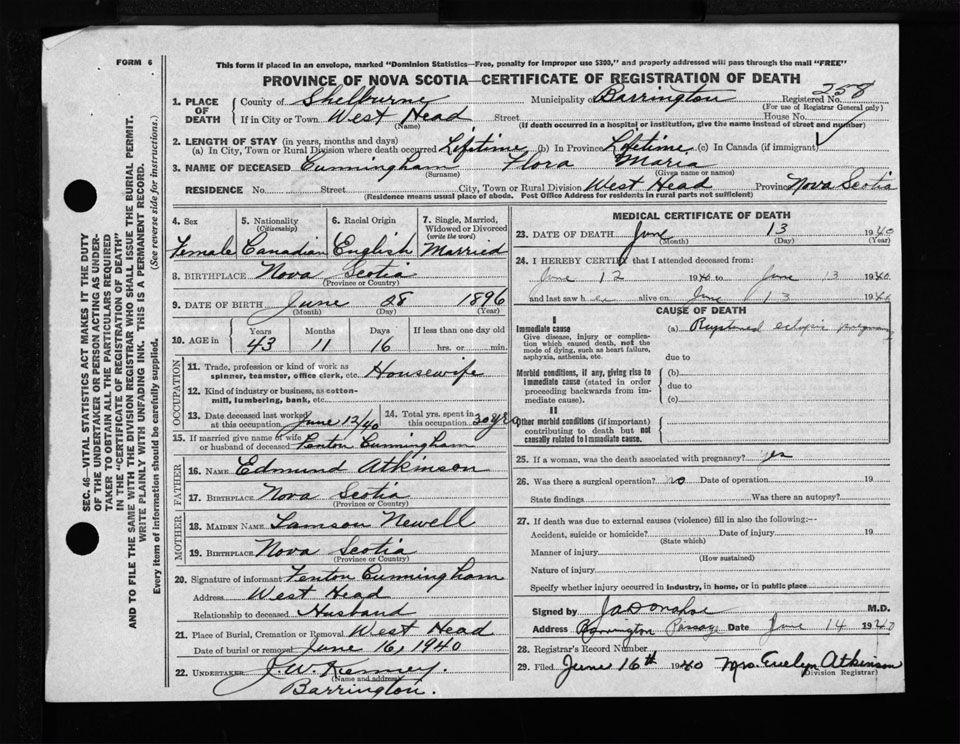 FORM 6
This form if placed in an envelope, marked "Dominion Statistics—Free, penalty for improper use $300," and properly addressed will pass through the mail "FREE"
PROVINCE OF NOVA SCOTIA—CERTIFICATE OF REGISTRATION OF DEATH
258
1. PLACE OF DEATH County of Shelburne Municipality Barrington Registered No.
(For use of Registrar General only)
If in City or Town West Head Street House No.
(Name) (If death occurred in a hospital or institution, give the name instead of street and number)
2. LENGTH OF STAY (in years, months and days)
(a) In City, Town or Rural Division where death occurred Lifetime (b) In Province Lifetime (c) In Canada (if immigrant) ✓
3. NAME OF DECEASED Cunningham Flora Maria
(Surname) (Given name or names)
RESIDENCE No. Street City, Town or Rural Division West Head Province Nova Scotia
(Residence means usual place of abode. Post Office Address for residents in rural parts not sufficient)
SEC. 46—VITAL STATISTICS ACT MAKES IT THE DUTY
OF THE UNDERTAKER OR PERSON ACTING AS UNDER-
TAKER TO OBTAIN ALL THE PARTICULARS REQUIRED
IN THE "CERTIFICATE OF REGISTRATION OF DEATH"
AND TO FILE THE SAME WITH THE DIVISION REGISTRAR WHO SHALL ISSUE THE BURIAL PERMIT.
WRITE PLAINLY WITH UNFADING INK. THIS IS A PERMANENT RECORD.
Every item of information should be carefully supplied. (See reverse side for instructions.)
4. Sex 5. Nationality (Citizenship) 6. Racial Origin 7. Single, Married, Widowed or Divorced (write the word)
Female Canadian English Married
8. BIRTHPLACE Nova Scotia
(Province or Country)
9. DATE OF BIRTH June 28 1896
(Month) (Day) (Year)
10. AGE in Years Months Days If less than one day old
43 11 16 hrs. or min.
OCCUPATION
11. Trade, profession or kind of work as spinner, teamster, office clerk, etc. Housewife
12. Kind of industry or business, as cotton-mill, lumbering, bank, etc.
13. Date deceased last worked at this occupation June 12/40 14. Total yrs. spent in this occupation 30 yrs
15. If married give name of wife or husband of deceased Fenton Cunningham
FATHER
16. NAME Edmund Atkinson
17. BIRTHPLACE Nova Scotia
(Province or Country)
MOTHER
18. MAIDEN NAME Newell
19. BIRTHPLACE Nova Scotia
(Province or Country)
20. Signature of informant Fenton Cunningham
Address West Head
Relationship to deceased Husband
21. Place of Burial, Cremation or Removal West Head
Date of burial or removal June 16, 1940
22. UNDERTAKER J. W. Kenney,
(Name and address)
Barrington.
MEDICAL CERTIFICATE OF DEATH
23. DATE OF DEATH June 13 1940
(Month) (Day) (Year)
24. I HEREBY CERTIFY that I attended deceased from:
June 12 1940 to June 13 1940
and last saw her alive on June 13 1940
CAUSE OF DEATH
I
Immediate cause (a) Ruptured ectopic pregnancy
Give disease, injury or complication which caused death, not the mode of dying, such as heart failure, asphyxia, asthenia, etc.
due to
Morbid conditions, if any, giving rise to immediate cause (stated in order proceeding backwards from immediate cause).
(b)
due to
(c)
II
Other morbid conditions (if important) contributing to death but not causally related to immediate cause.
25. If a woman, was the death associated with pregnancy? yes
26. Was there a surgical operation? no Date of operation 19
State findings Was there an autopsy?
27. If death was due to external causes (violence) fill in also the following:--
Accident, suicide or homicide? Date of injury 19
(State which)
Manner of injury
(How sustained)
Nature of injury
Specify whether injury occurred in industry, in home, or in public place
Signed by J A Donahoe M.D.
Address Barrington Passage Date June 14 1940
28. Registrar's Record Number
29. Filed June 16th 1940 Mrs. Evelyn Atkinson
(Division Registrar)